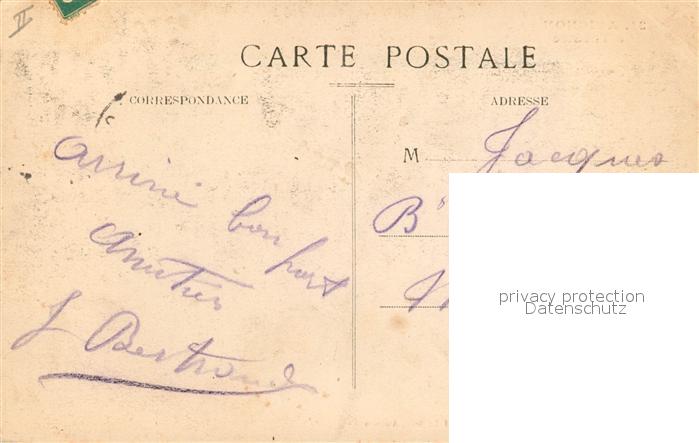 II
CARTE POSTALE
CORRESPONDANCE
ADRESSE
M Jacques
arrivé bon port
amitiés
J Bertrand
Bd
privacy protection
Datenschutz